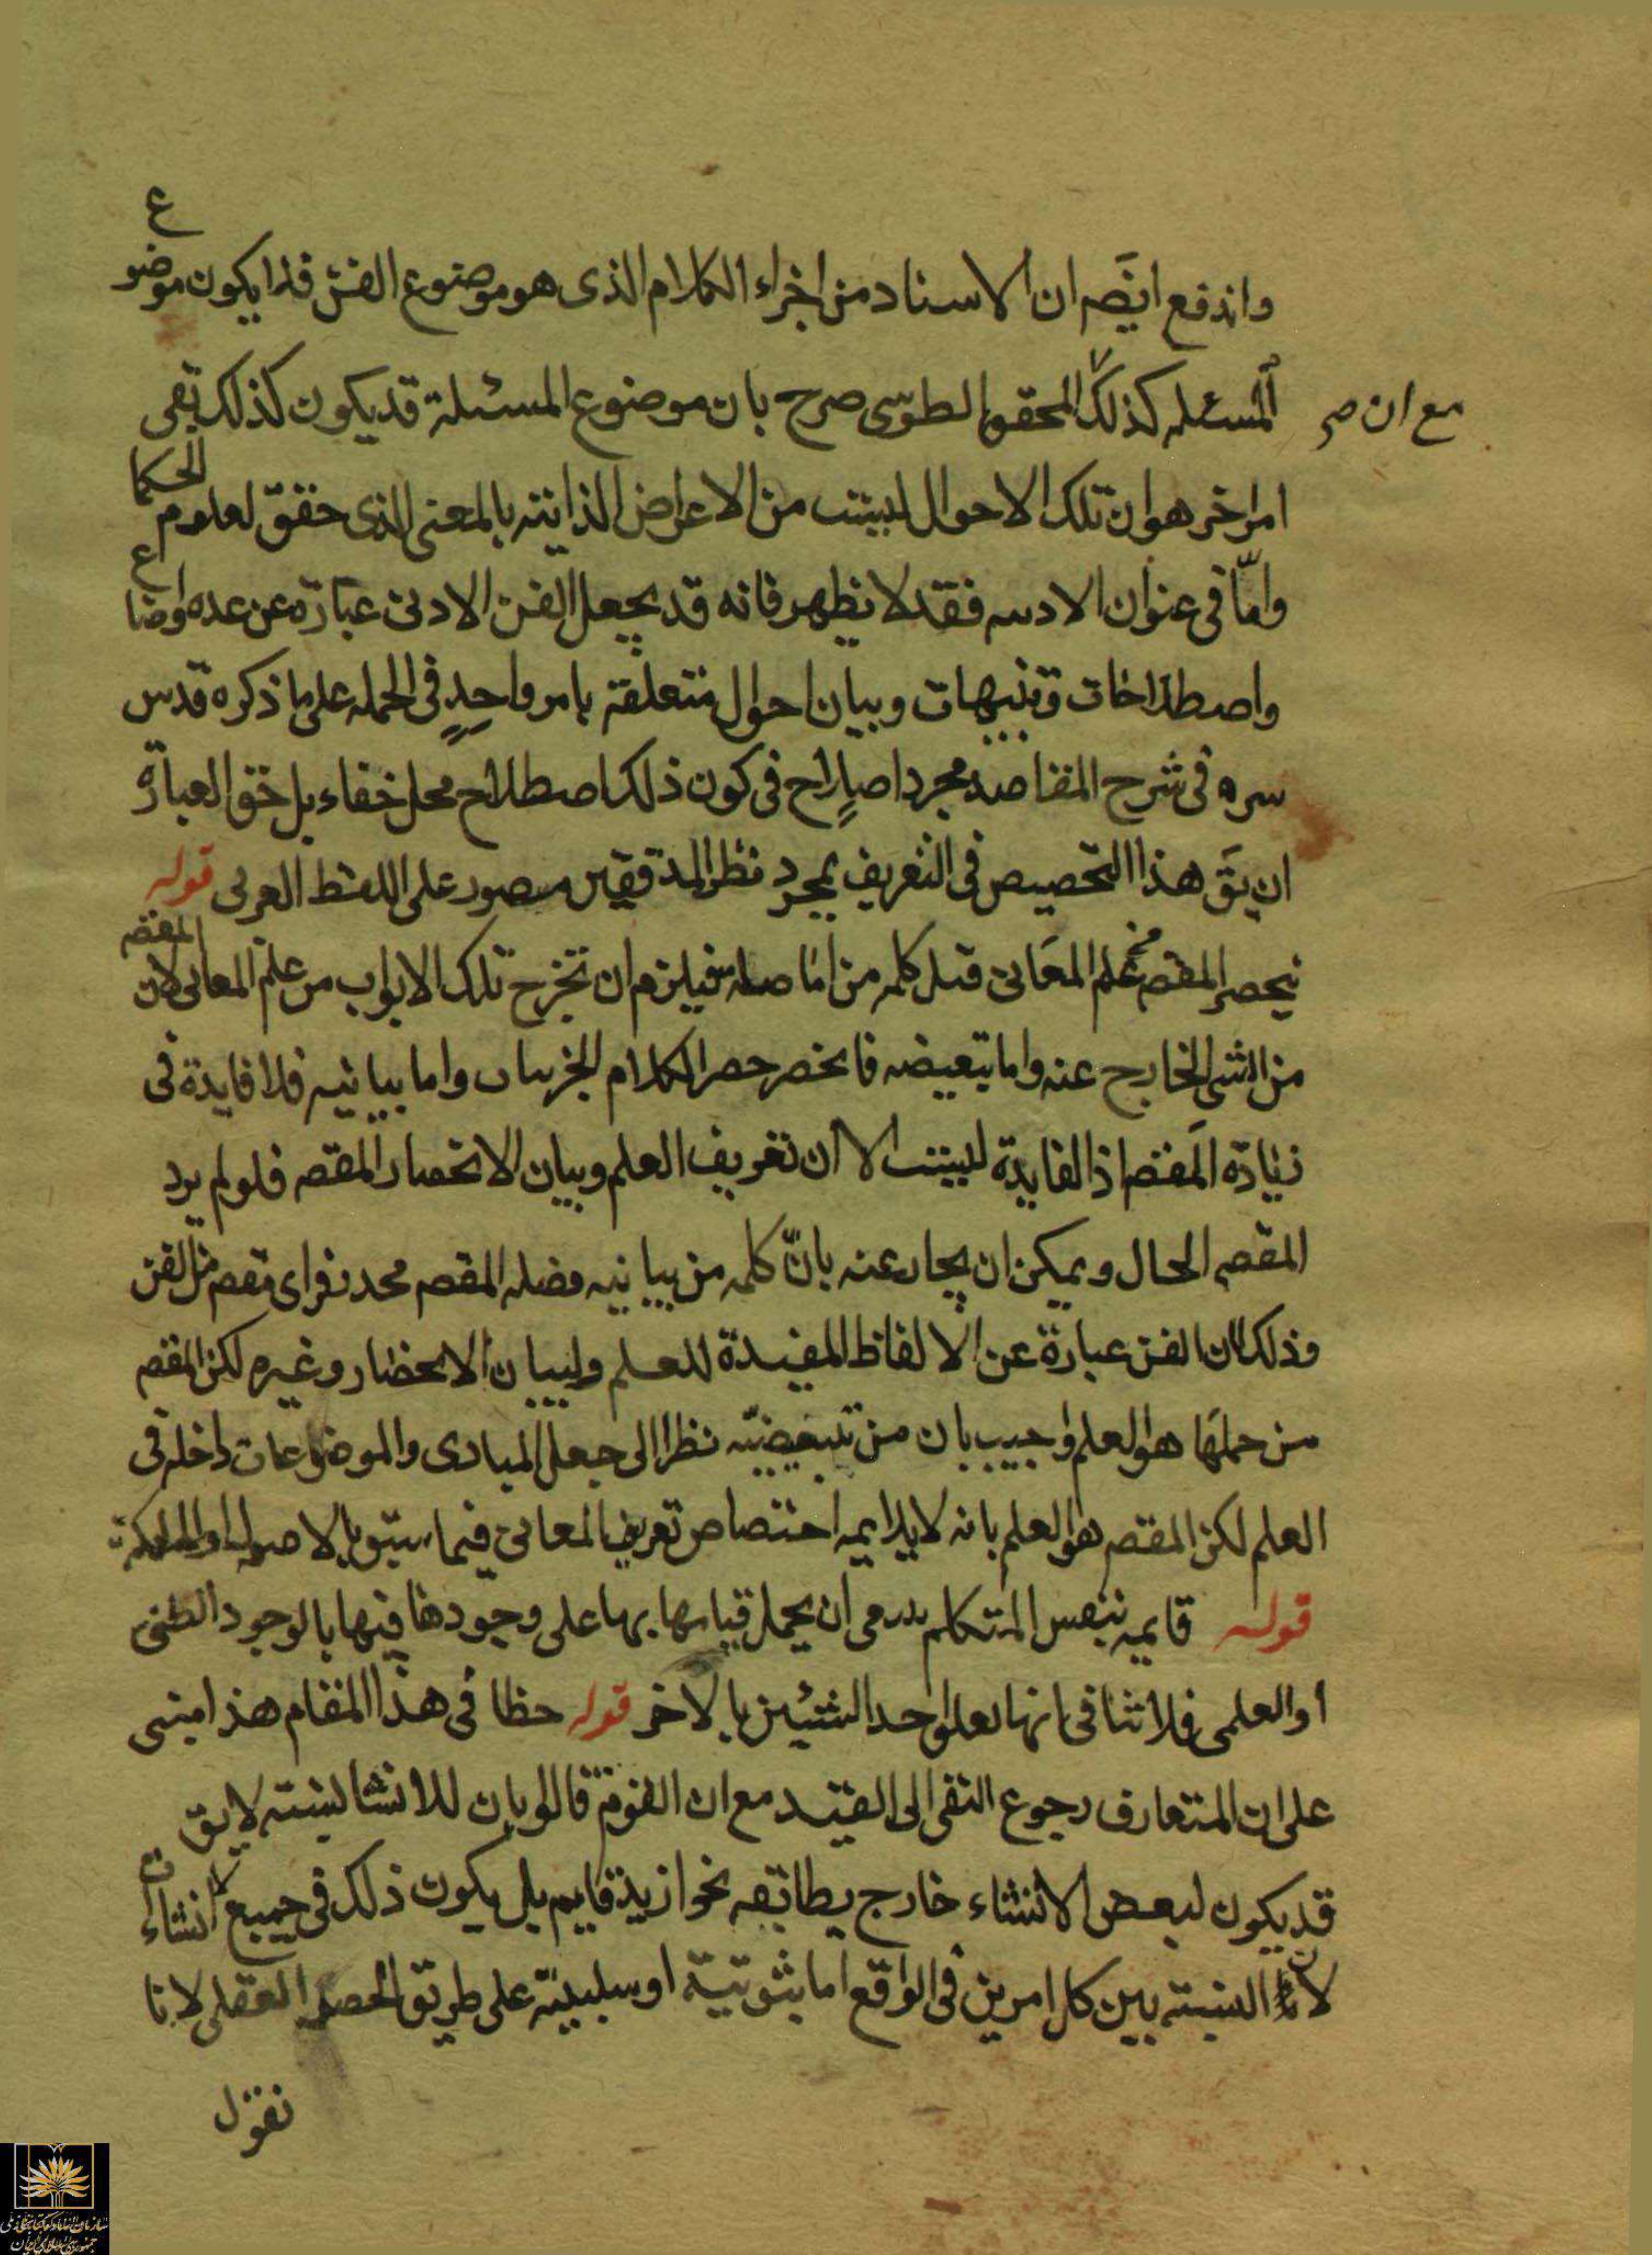 واندفع ايضَم ان الاسناد من اجزاء الكلام الذى هو موضوع الفن فلا يكون موضوع
المسئله كذلك المحقق الطوسى صرح بان موضوع المسئلة قد يكون كذلك بقى
مع ان صح
امر اخر هو ان تلك الاحوال ليست من الاعراض الذاتية بالمعنى الذى حقق لعلوم الحكما
وامّا فى عنوان الادبيه فقد لا يظهر فانه قد يجعل الفن الادبى عبارة عن عده اوضاع
واصطلاحات وتنبيهات وبيان احوال متعلقة بامر واحدٍ فى الجمله على ما ذكره قدس
سره فى شرح المفاصد مجرد اصلاح فى كون ذلك اصطلاح محل خفاء بل حق العبارة
ان يقَ هذا التخصيص فى التعريف بمجرد نظر المدققين مقصور على اللفظ العربى قوله
ينحصر المقصم علم المعَانى قبل كلمه من اما صله فيلزم ان تخرج تلك الابواب من علم المعانى لان المقصم
من الشى الخارج عنه واما تبعيضه فانحصر حصر الكلام الجزئيات واما بيانيه فلا فايدة فى
زيادة المَقصم اذ الفايدة ليست الا ان تعريف العلم وبيان الانحصار المقصم فلو لم يرد
المقصم الحال ويمكن ان يجاب عنه بانّ كلمه من بيانيه وصله المقصم محذوف اى مقصم من الفن
وذلك لان الفن عبارة عن الالفاظ المفيدة للعلم ولبيان الانحصار وغيره لكن المقصم
من جملَها هو العلم واجيب بان من تبعيضيّه نظرا الى جعل المبادى والموضوعات داخله فى
العلم لكن المقصم هو العلم بانه لا يلايمه اختصاص تعريف المعانى فيما سبق بالاصول او الملكة
قوله قايمه بنفس المتكلم ان يحمل قيامها بها على وجودها فيها بالوجود الظنى
او العلمى فلا تنافى انها تعلق احد الشيئين بالاخر قوله خطا فى هذا المقام هذا مبنى
على ان المتعارف رجوع النفى الى القيد مع ان القوم قالوا بان للانشا نسبته لا يق
قد يكون لبعض الانشاء خارج يطابقه نحو ازيد قايم بل يكون ذلك فى جميع الانشاءات
لان النسبته بين كل امرين فى الواقع اما بثوتيّة او سلبيّة على طريق الحصر العقلى لانا
نقول